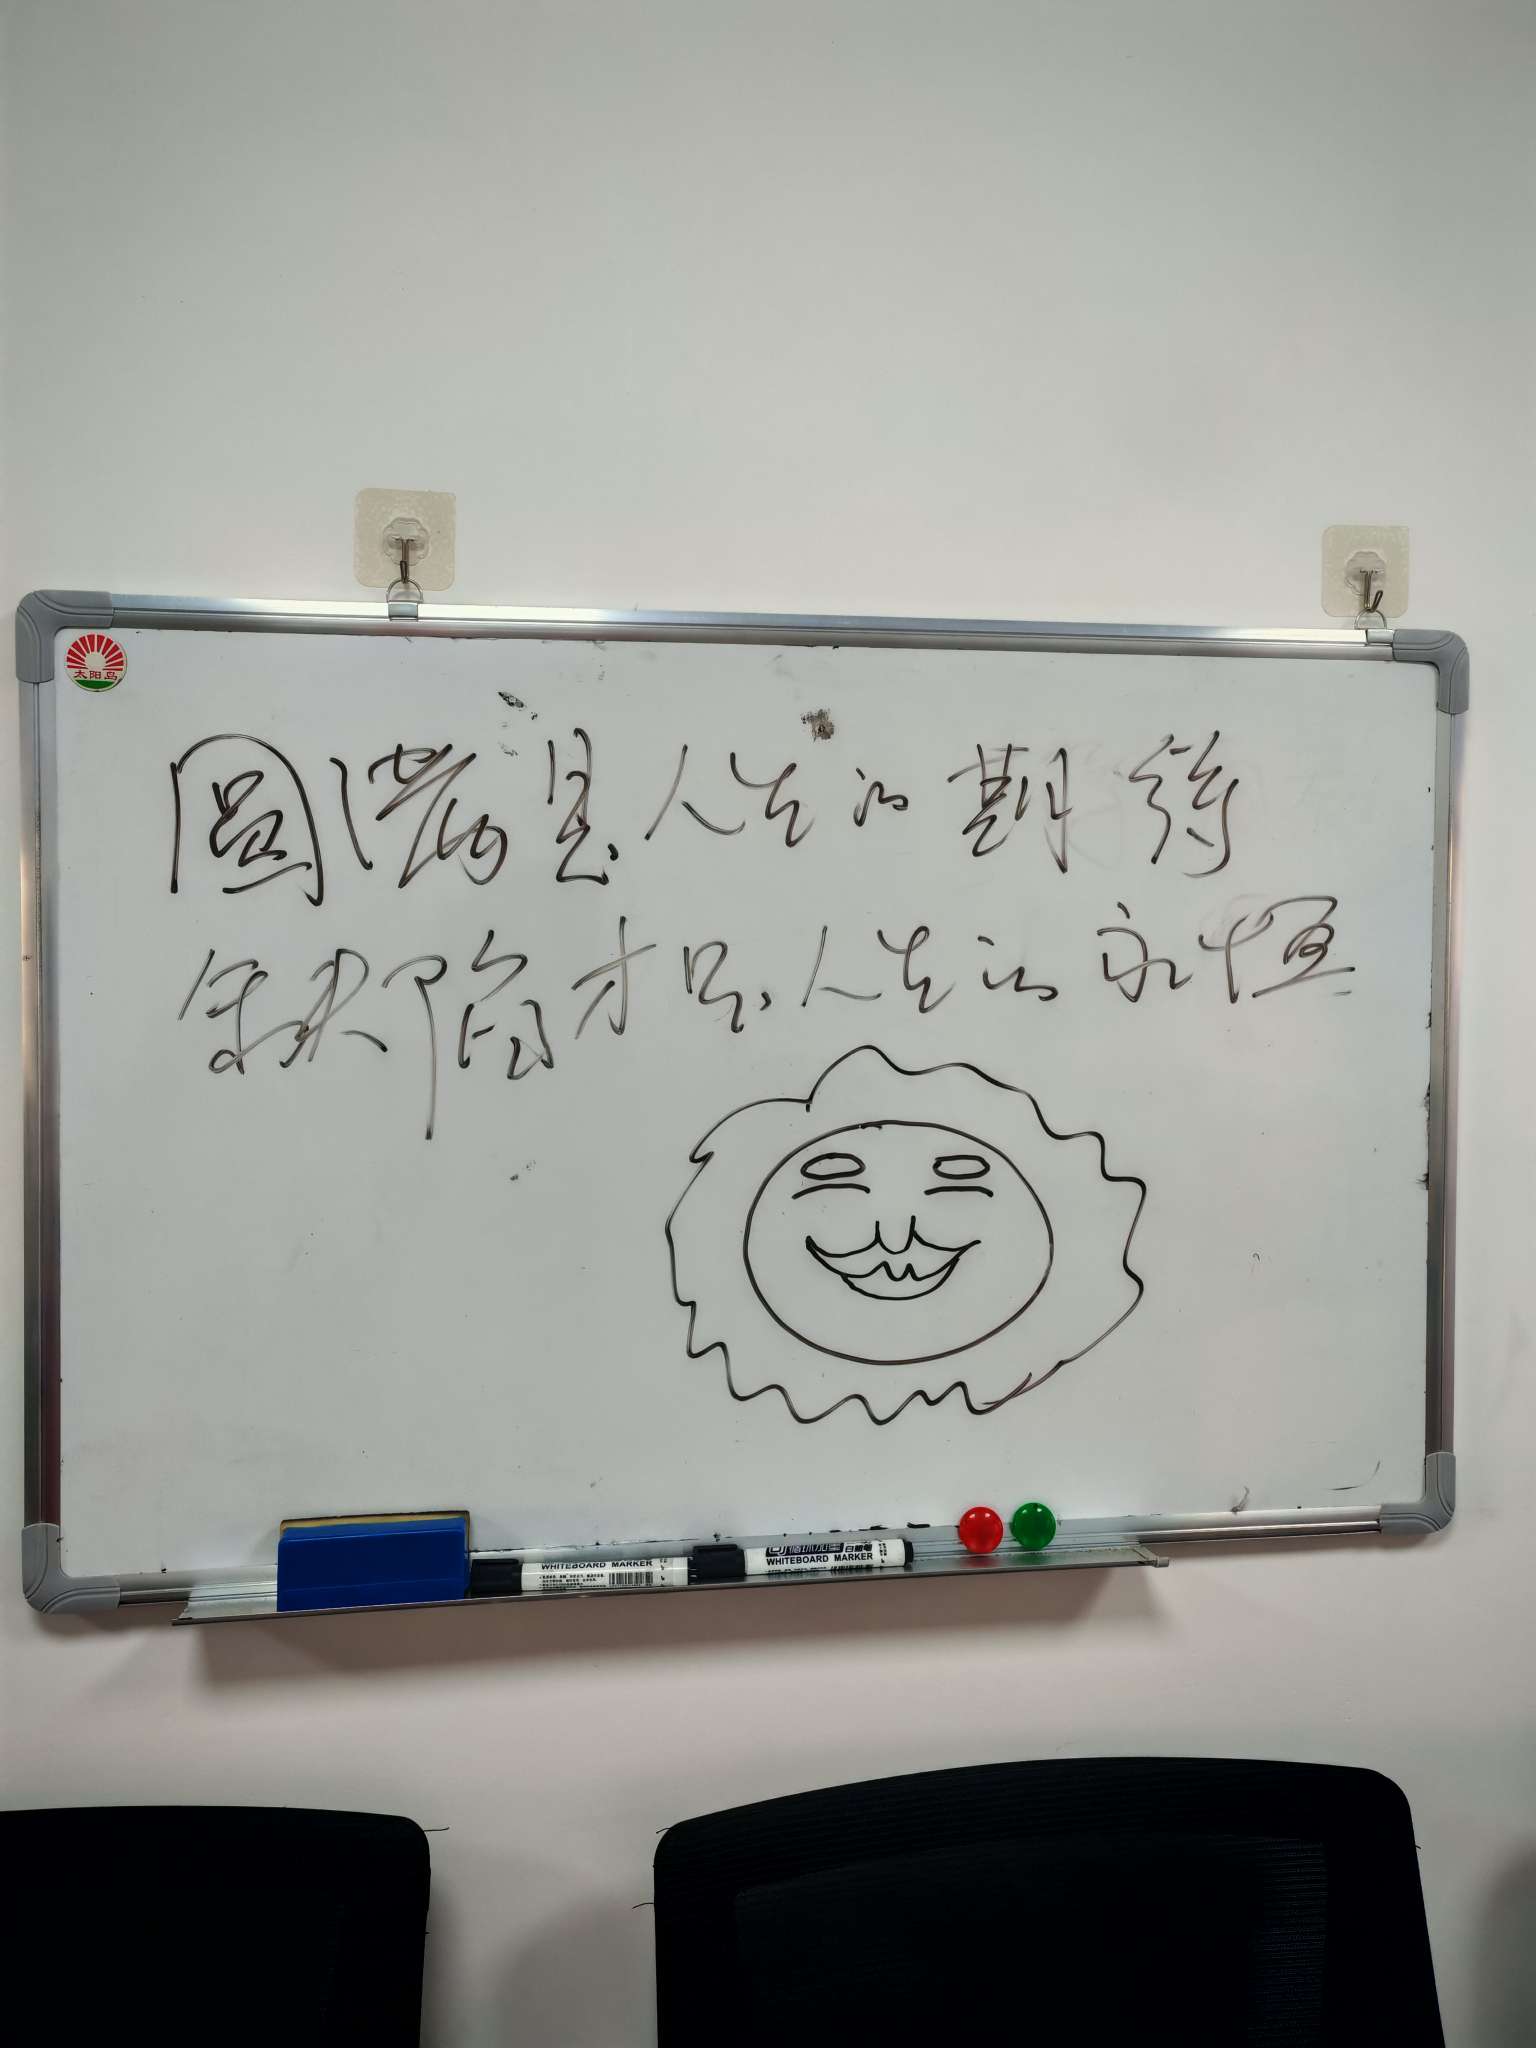 太阳鸟
圓满是人生的期待
缺陷才是人生的永恒
WHITEBOARD MARKER
WHITEBOARD MARKER